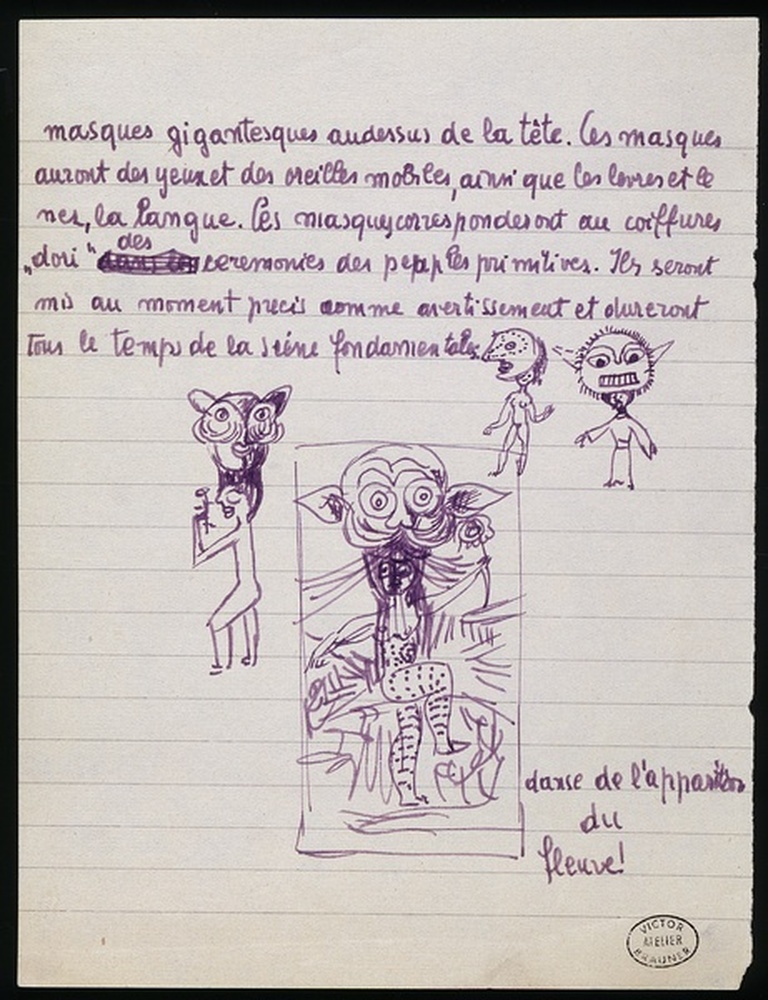 masques gigantesques audessus de la tête. Ces masques
auront des yeux et des oreilles mobiles, ainsi que les levres et le
nez, la langue. Ces masques corresponderont au coiffures
„dori“ des ceremonies des peuples primitives. Ils seront
mis au moment precis comme avertissement et dureront
tous le temps de la scéne fondamentale.
danse de l'apparition
du
fleuve!
VICTOR
ATELIER
BRAUNER